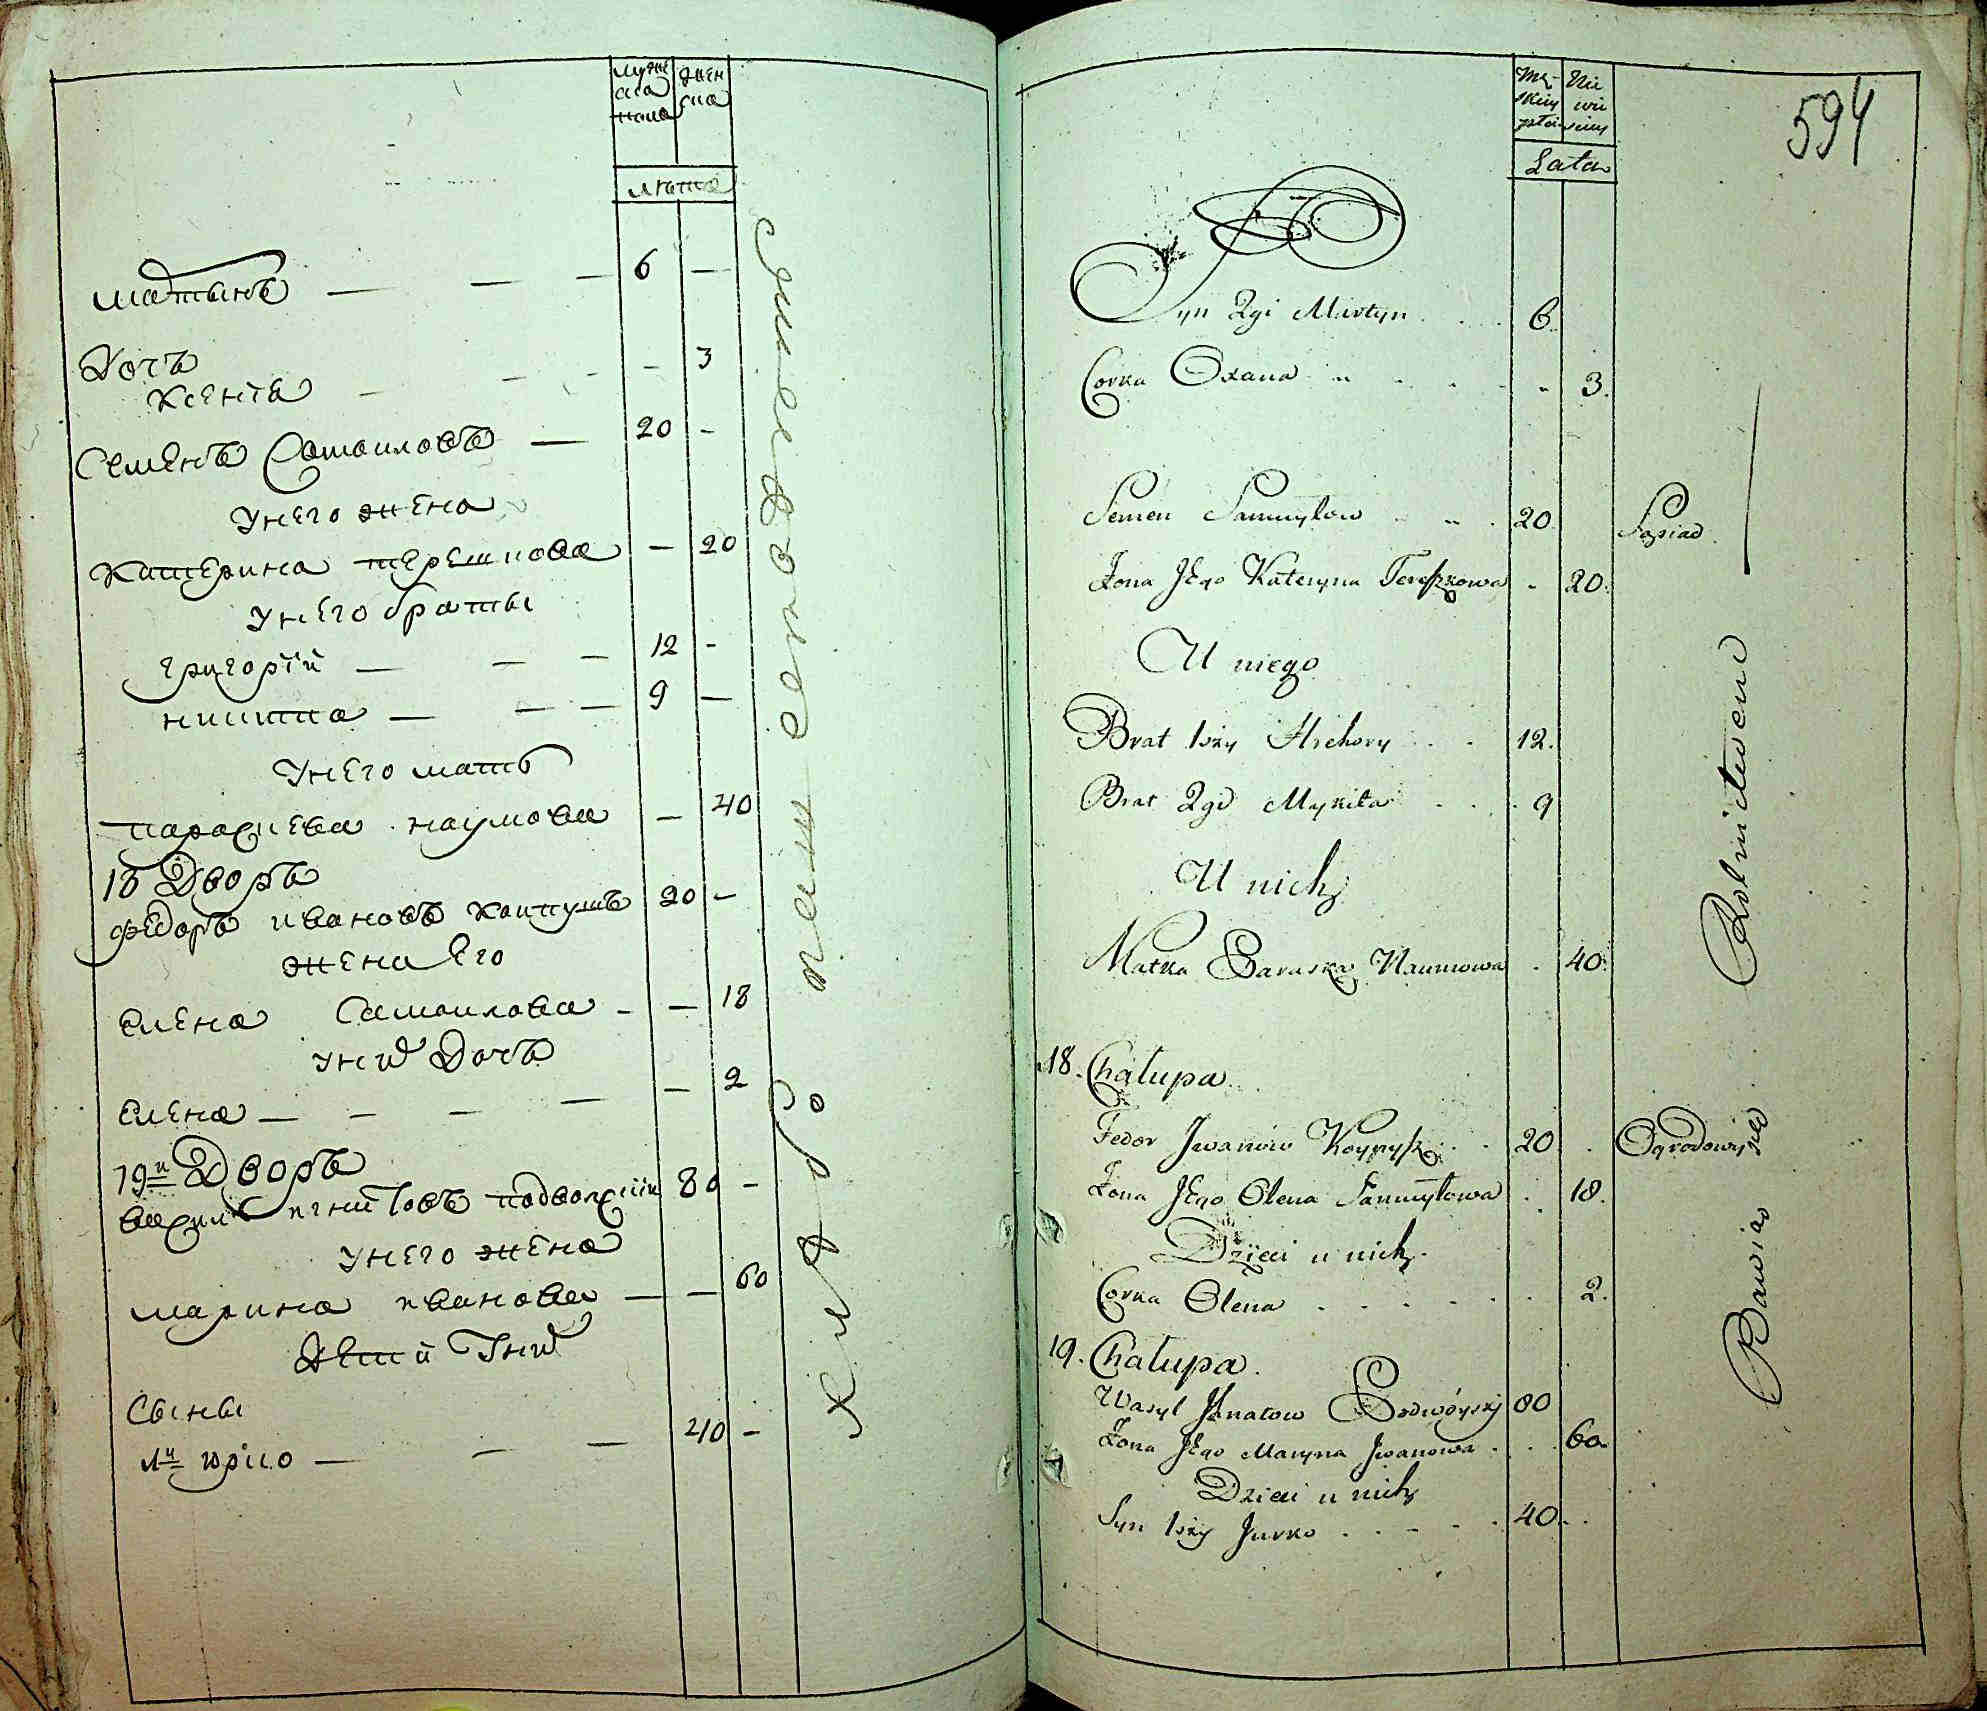 муже
ска
пола
жен
ска
лѣта
матвѣй — — — 6 —
Дочъ
Ксенїа — - - - 3
Семенъ Самоиловъ — 20 -
Унего жена
Катерина терешкова — 20
Унего браты
григорїй — — — 12 -
никита — — — 9 —
Унего мать
параскева наумова — 40
18 Дворъ
Федоръ ивановъ 20 -
жена Его
Елена Самоилова - — 18
уних Дочъ
Елена — — — — — 2
19й Дворъ
василь игнатовъ подворскій 80 -
унего жена
марина иванова — — 60
Дети Уних
Сыны
1й юрко — — — 40 -
Męskiey płci
Niewieściey
Lata
594
Syn 2gi Martyn 6
Corka Oxana 3.
Semen Samuyłow 20 Sąsiad
Żona Jego Kateryna Tereszkowa 20.
U niego
Brat 1szy Hrehory 12.
Brat 2gi Mykita 9
U nich
Matka Paraska Naumowa 40.
18. Chałupa
Fedor Jwanow 20 Ogrodowy
Żona Jego Olena Samuyłowa 18.
Dzieci u nich
Corka Olena 2.
19. Chałupa
Wasyl Jhnatow Podworski 80
Żona Jego Maryna Jwanowa 60
Dzieci u nich
Syn 1szy Jurko 40
Rolnictwem
Bawią